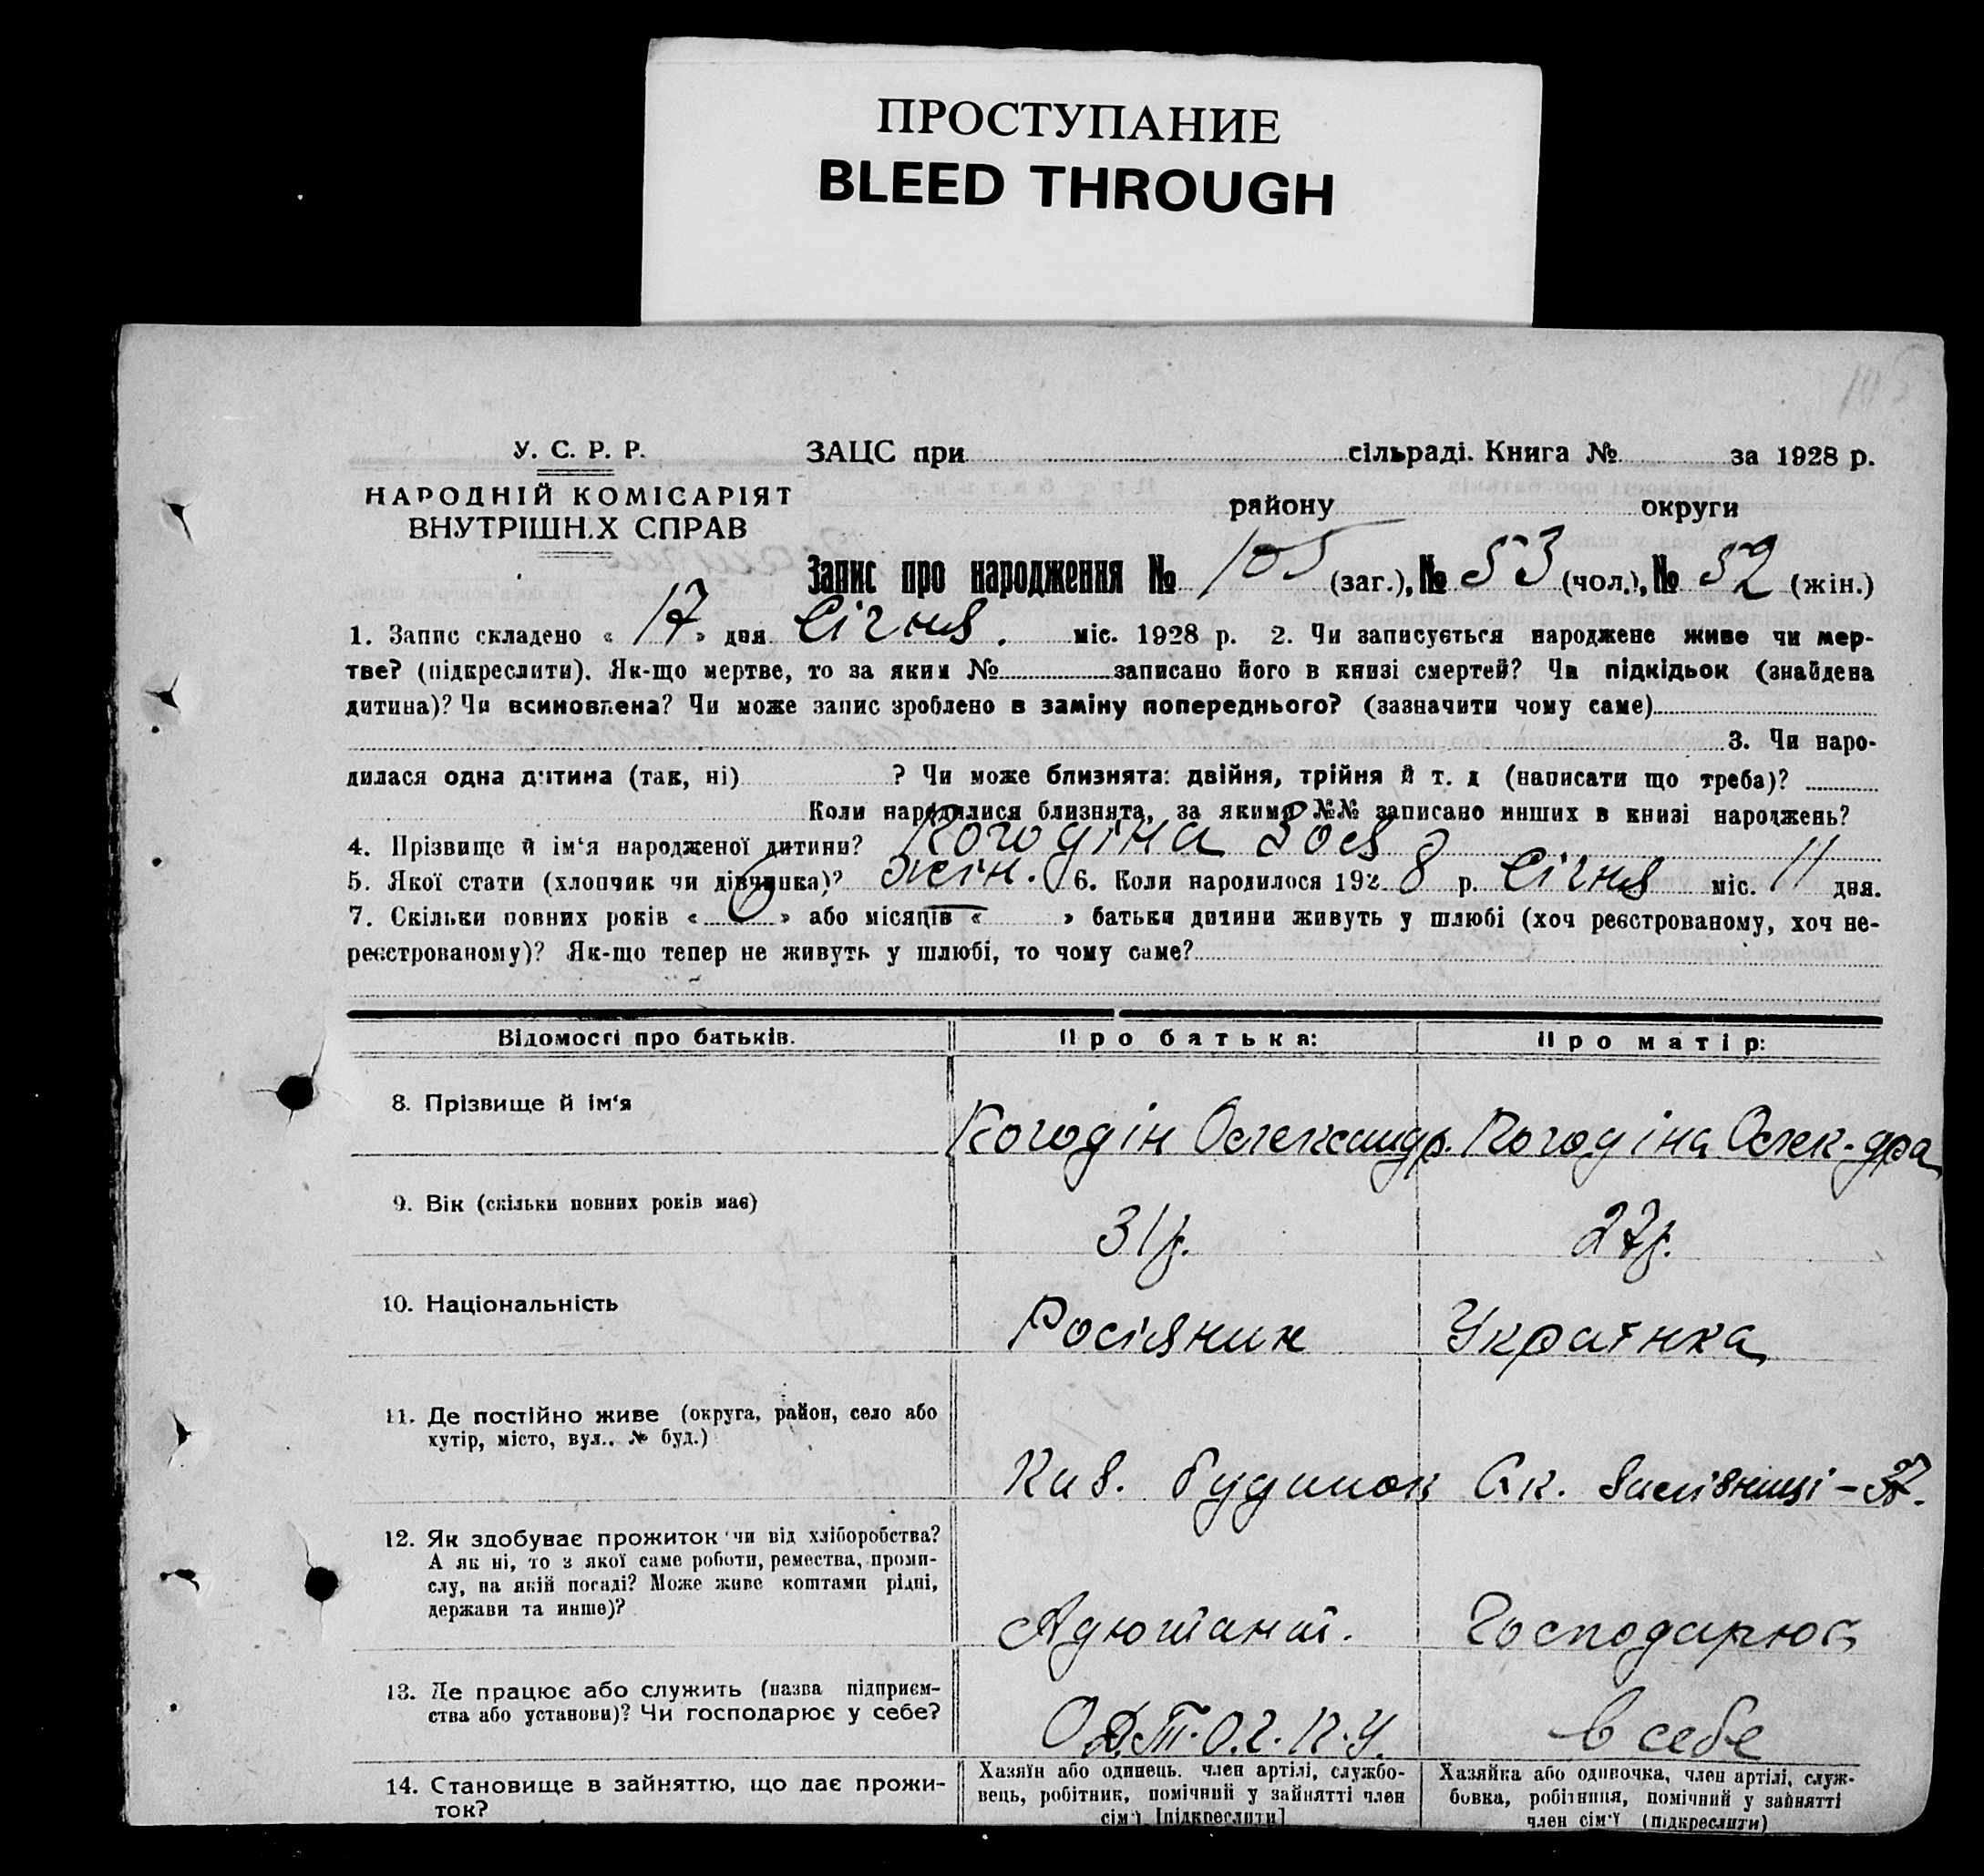 ПРОСТУПАНИЕ
BLEED THROUGH
105
У. С. Р. Р.
НАРОДНІЙ КОМІСАРІЯТ
ВНУТРІШН.Х СПРАВ
ЗАЦС при сільраді. Книга № за 1928 р.
району округи
Запис про народження № 105 (заг.), № 53 (чол.), № 52 (жін.)
1. Запис складено « 17 » дня Січня. міс. 1928 р. 2. Чи записується народжене живе чи мер-
тве? (підкреслити). Як-що мертве, то за яким № записано його в книзі смертей? Чи підкідьок (знайдена
дитина)? Чи всиновлена? Чи може запис зроблено в заміну попереднього? (зазначити чому саме)
3. Чи наро-
дилася одна дитина (так, ні) ? Чи може близнята: двійня, трійня й т. д (написати що треба)?
Коли народилися близнята, за якими №№ записано инших в книзі народжень?
4. Прізвище й ім'я народженої дитини? Погодіна Зоя
5. Якої стати (хлопчик чи дівчинка)? жін. 6. Коли народилося 1928 р. Січня міс. 11 дня.
7. Скільки повних років « 6 » або місяців « » батьки дитини живуть у шлюбі (хоч реєстрованому, хоч не-
реєстрованому)? Як-що тепер не живуть у шлюбі, то чому саме?
Відомості про батьків. Про батька: Про матір:
8. Прізвище й ім'я Погодін Олександр. Погодіна Олек-дра
9. Вік (скільки повних років має) 31 р. 27 р.
10. Національність Росіянин Українка
11. Де постійно живе (округа, район, село або
хутір, місто, вул., № буд.)
будинок
12. Як здобуває прожиток чи від хліборобства?
А як ні, то з якої саме роботи, ремества, проми-
слу, на якій посаді? Може живе коштами рідні,
держави та инше)?
Адютант. Господарює
13. Де працює або служить (назва підприєм-
ства або установи)? Чи господарює у себе?
О.Д.Т.О.Г.П.У. в себе
14. Становище в зайняттю, що дає прожи-
ток?
Хазяїн або одинець, член артілі, службо-
вець, робітник, помічний у зайнятті член
сім'ї [підкреслити]
Хазяйка або одиночка, член артілі, служ-
бовка, робітниця, помічний у зайнятті
член сім'ї (підкреслити)